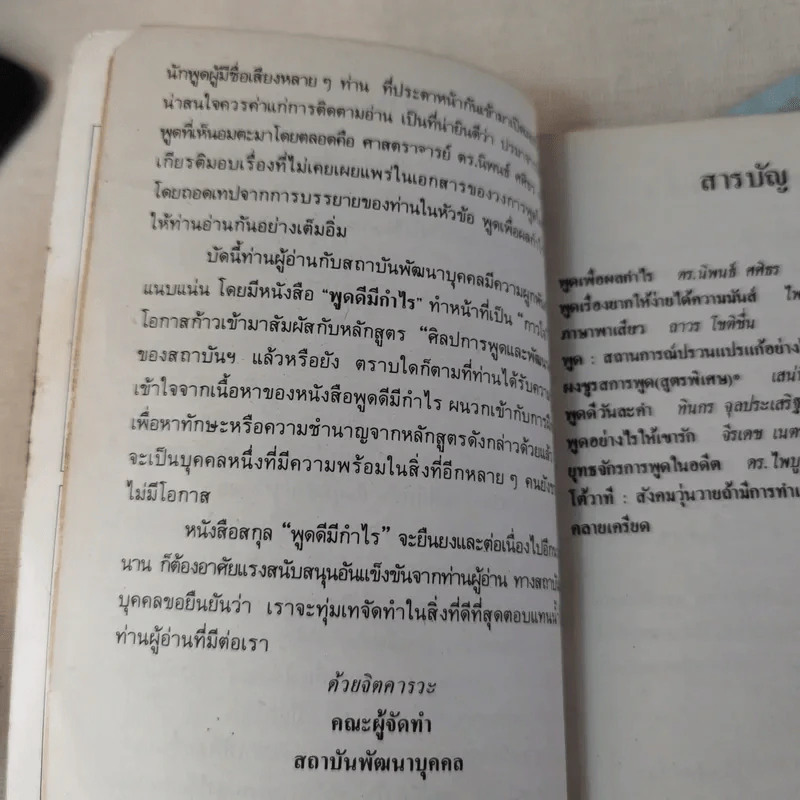 นักพูดผู้มีชื่อเสียงหลาย ๆ ท่าน ที่ประดาหน้ากันเข้ามาเปิด
น่าสนใจควรค่าแก่การติดตามอ่าน เป็นที่น่ายินดีว่า
พูดที่เห็นอมตะมาโดยตลอดคือ ศาสตราจารย์ ดร.นิพนธ์ ศศิธร
เกียรติมอบเรื่องที่ไม่เคยเผยแพร่ในเอกสารของวงการพูด
โดยถอดเทปจากการบรรยายของท่านในหัวข้อ พูดเพื่อผลกำไร
ให้ท่านอ่านกันอย่างเต็มอิ่ม
บัดนี้ท่านผู้อ่านกับสถาบันพัฒนาบุคคลมีความผูกพัน
แนบแน่น โดยมีหนังสือ "พูดดีมีกำไร" ทำหน้าที่เป็น
โอกาสก้าวเข้ามาสัมผัสกับหลักสูตร "ศิลปการพูดและพัฒน
ของสถาบันฯ แล้วหรือยัง ตราบใดก็ตามที่ท่านได้รับความ
เข้าใจจากเนื้อหาของหนังสือพูดดีมีกำไร ผนวกเข้ากับการฝึก
เพื่อหาทักษะหรือความชำนาญจากหลักสูตรดังกล่าวด้วยแล้ว
จะเป็นบุคคลหนึ่งที่มีความพร้อมในสิ่งที่อีกหลาย ๆ คนยัง
ไม่มีโอกาส
หนังสือสกุล "พูดดีมีกำไร" จะยืนยงและต่อเนื่องไปอีก
นาน ก็ต้องอาศัยแรงสนับสนุนอันแข็งขันจากท่านผู้อ่าน ทางสถาบัน
บุคคลขอยืนยันว่า เราจะทุ่มเทจัดทำในสิ่งที่ดีที่สุดตอบแทน
ท่านผู้อ่านที่มีต่อเรา
ด้วยจิตคารวะ
คณะผู้จัดทำ
สถาบันพัฒนาบุคคล
สารบัญ
พูดเพื่อผลกำไร ดร.นิพนธ์ ศศิธร
พูดเรื่องยากให้ง่ายได้ความมันส์
ภาษาพาเสียว ถาวร โชติชื่น
พูด : สถานการณ์ปรวนแปรแก้อย่าง
ผงชูรสการพูด(สูตรพิเศษ)*
พูดดีวันละคำ ทินกร จุลประเสริฐ
พูดอย่างไรให้เขารัก จีรเดช
ยุทธจักรการพูดในอดีต ดร.
โต้วาที : สังคมวุ่นวายถ้ามีการทำ
คลายเครียด